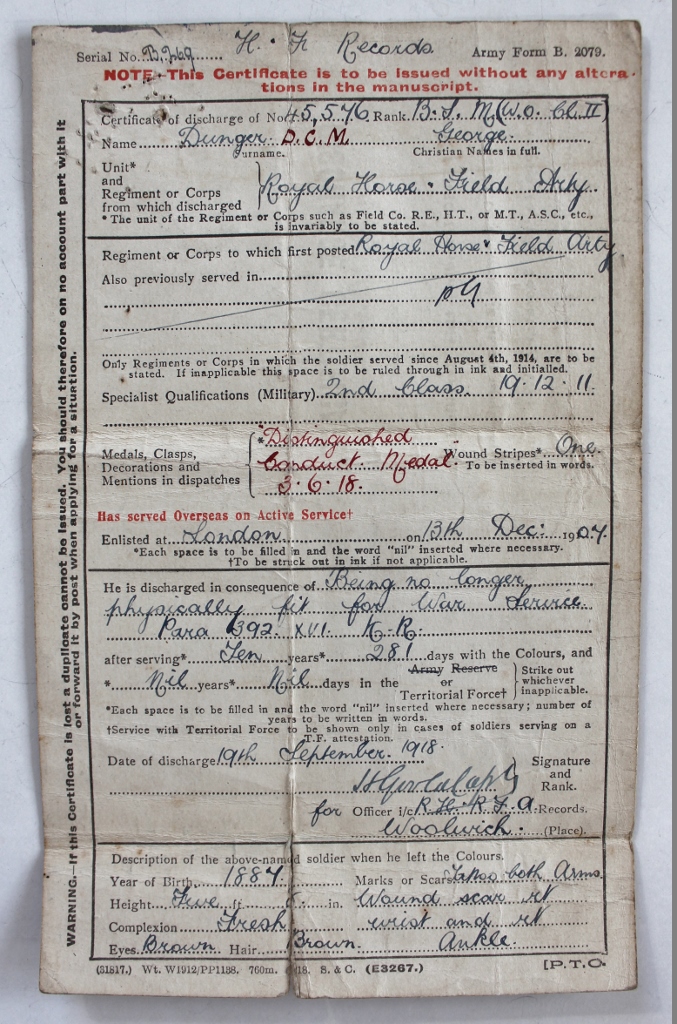 Serial No. B.269 H. F. Records Army Form B. 2079.
NOTE.—This Certificate is to be issued without any altera-
tions in the manuscript.
Certificate of discharge of No. 45,576 Rank B.S.M. (W.O. Cl. II)
Name Dunger D.C.M. George
Surname. Christian Names in full.
Unit*
and
Regiment or Corps
from which discharged
Royal Horse & Field Arty.
* The unit of the Regiment or Corps such as Field Co. R.E., H.T., or M.T., A.S.C., etc.,
is invariably to be stated.
Regiment or Corps to which first posted Royal Horse & Field Arty
Also previously served in
Only Regiments or Corps in which the soldier served since August 4th, 1914, are to be
stated. If inapplicable this space is to be ruled through in ink and initialled.
Specialist Qualifications (Military) 2nd Class. 19.12.11.
Medals, Clasps,
Decorations and
Mentions in dispatches
*Distinguished
Conduct Medal.
3.6.18.
Wound Stripes* One.
To be inserted in words.
Has served Overseas on Active Service†
Enlisted at London on 13th Dec: 1907.
*Each space is to be filled in and the word "nil" inserted where necessary.
†To be struck out in ink if not applicable.
He is discharged in consequence of Being no longer
physically fit for War Service.
Para 392. XVI. K.R.
after serving* Ten years* 281 days with the Colours, and
* Nil years* Nil days in the Army Reserve or Territorial Force† Strike out whichever inapplicable.
*Each space is to be filled in and the word "nil" inserted where necessary; number of
years to be written in words.
†Service with Territorial Force to be shown only in cases of soldiers serving on a
T.F. attestation.
Date of discharge 19th September. 1918.
Signature
and
Rank.
for Officer i/c R.H. & R.F.A. Records.
Woolwich. (Place).
Description of the above-named soldier when he left the Colours.
Year of Birth 1887 Marks or Scars Tattoo both Arms.
Height Five ft. in. Wound scar rt
Complexion Fresh wrist and rt
Eyes Brown Hair Brown. Ankle.
(31517.) Wt. W1912/PP1138. 760m. 18. S. & C. (E3267.) [P.T.O.
WARNING.—If this Certificate is lost a duplicate cannot be issued. You should therefore on no account part with it
or forward it by post when applying for a situation.